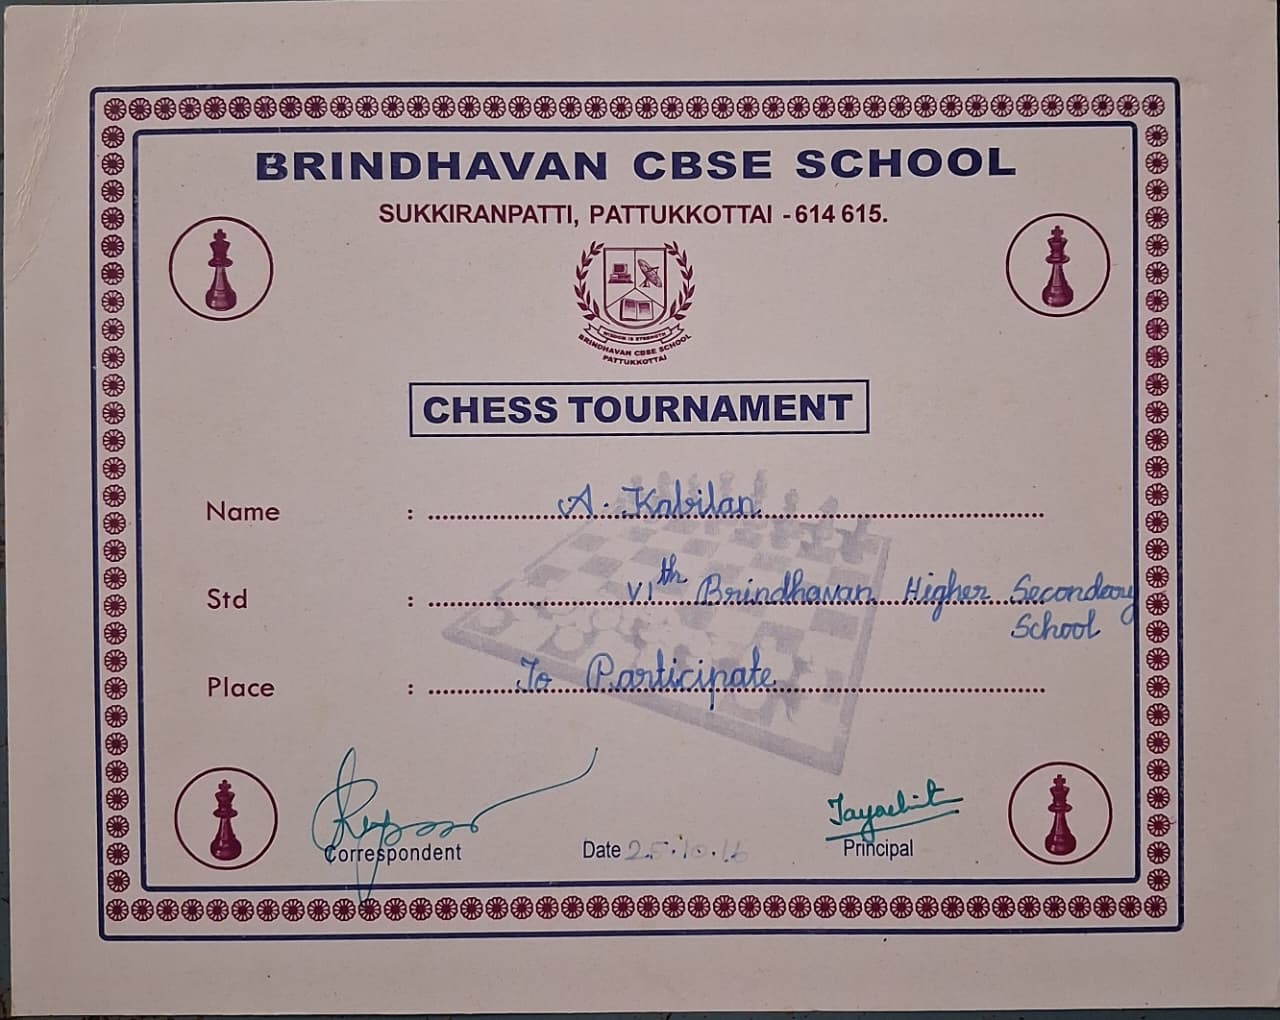 BRINDHAVAN CBSE SCHOOL
SUKKIRANPATTI, PATTUKKOTTAI - 614 615.
WISDOM IS STRENGTH
BRINDHAVAN CBSE SCHOOL
PATTUKKOTTAI
CHESS TOURNAMENT
Name : A. Kabilan
Std : VIth Brindhavan Higher Secondary
School
Place : To Participate
Correspondent Date 25.10.16 Principal